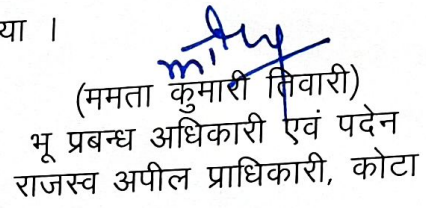 या ।
(ममता कुमारी तिवारी)
भू प्रबन्ध अधिकारी एवं पदेन
राजस्व अपील प्राधिकारी, कोटा